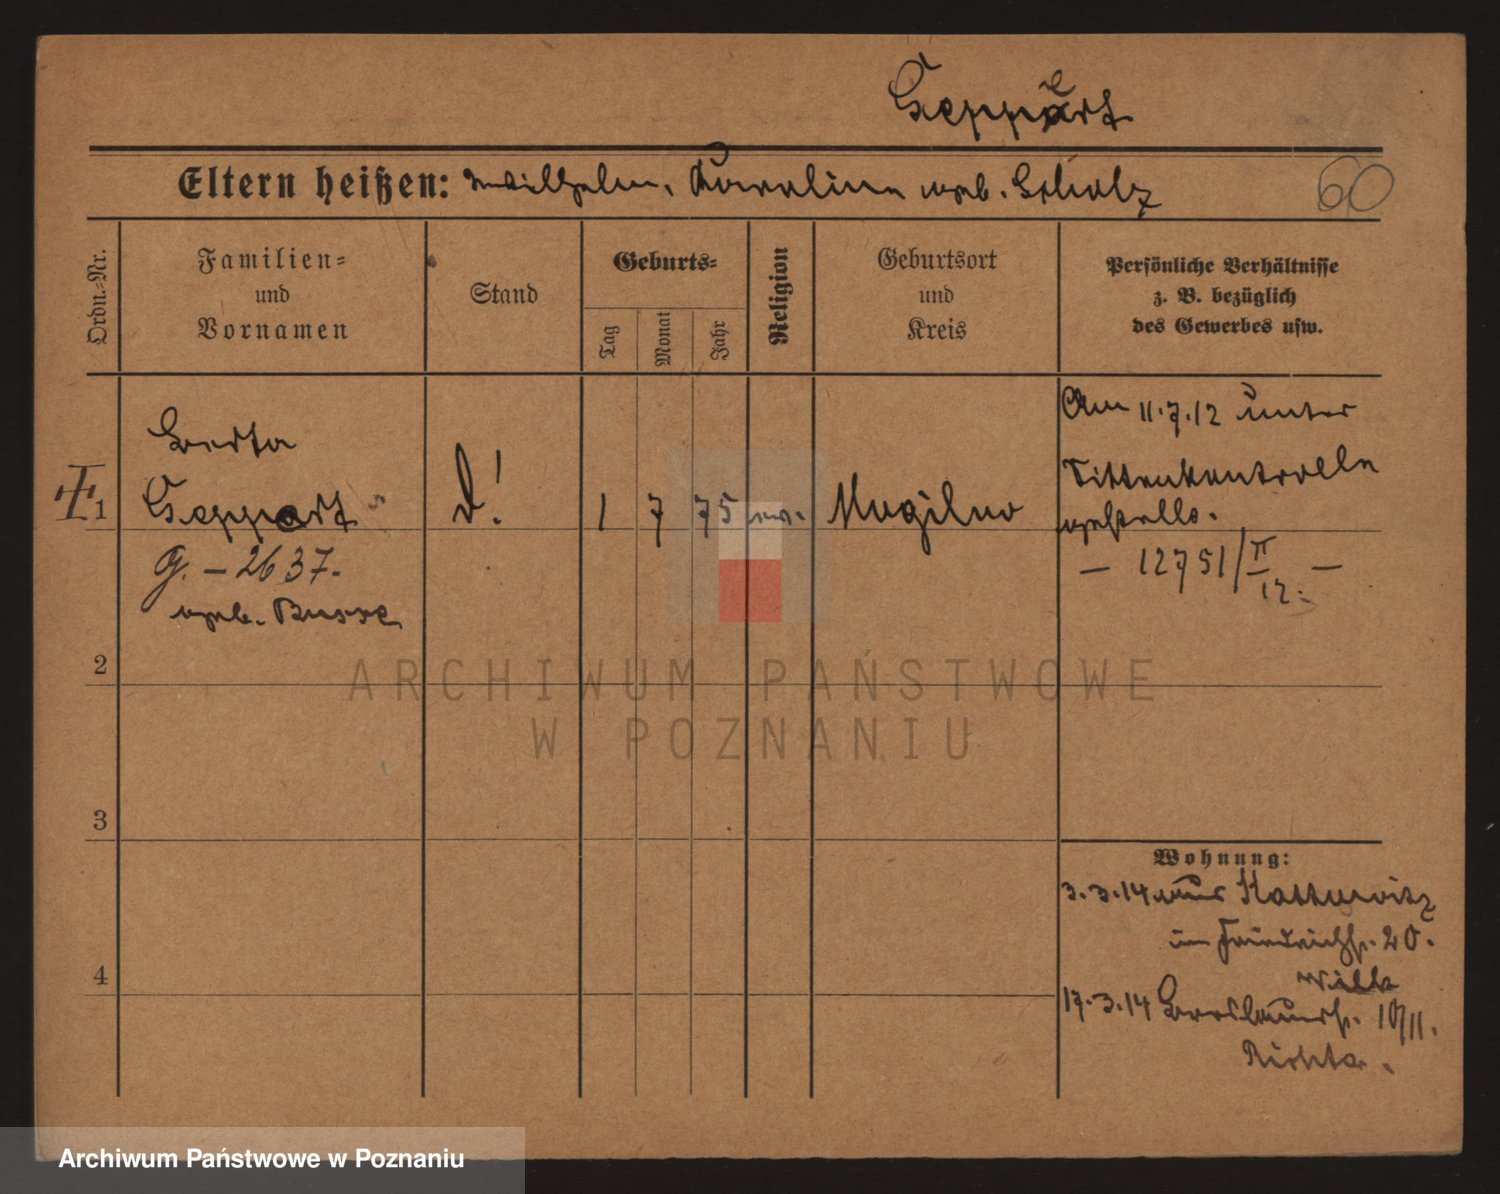 Geppert
Eltern heißen: Wilhelm, Karoline geb. Scholz
60
Ordn.-Nr.
Familien-
und
Vornamen
Stand
Geburts-
Tag
Monat
Jahr
Religion
Geburtsort
und
Kreis
Persönliche Verhältnisse
z. B. bezüglich
des Gewerbes usw.
1
Berta
Geppert
G. – 2637.
geb. Busse
D!
1
7
75
ev.
Mogilno
Am 11.7.12 unter
Sittenkontrolle
gestellt.
– 12751/II/12. –
2
3
4
Wohnung:
3.3.14 aus Kattowitz
in Friedrichstr. 20.
Wilk
17.3.14 Breslauerstr. 10/11.
Richter.
ARCHIWUM PAŃSTWOWE
W POZNANIU
Archiwum Państwowe w Poznaniu